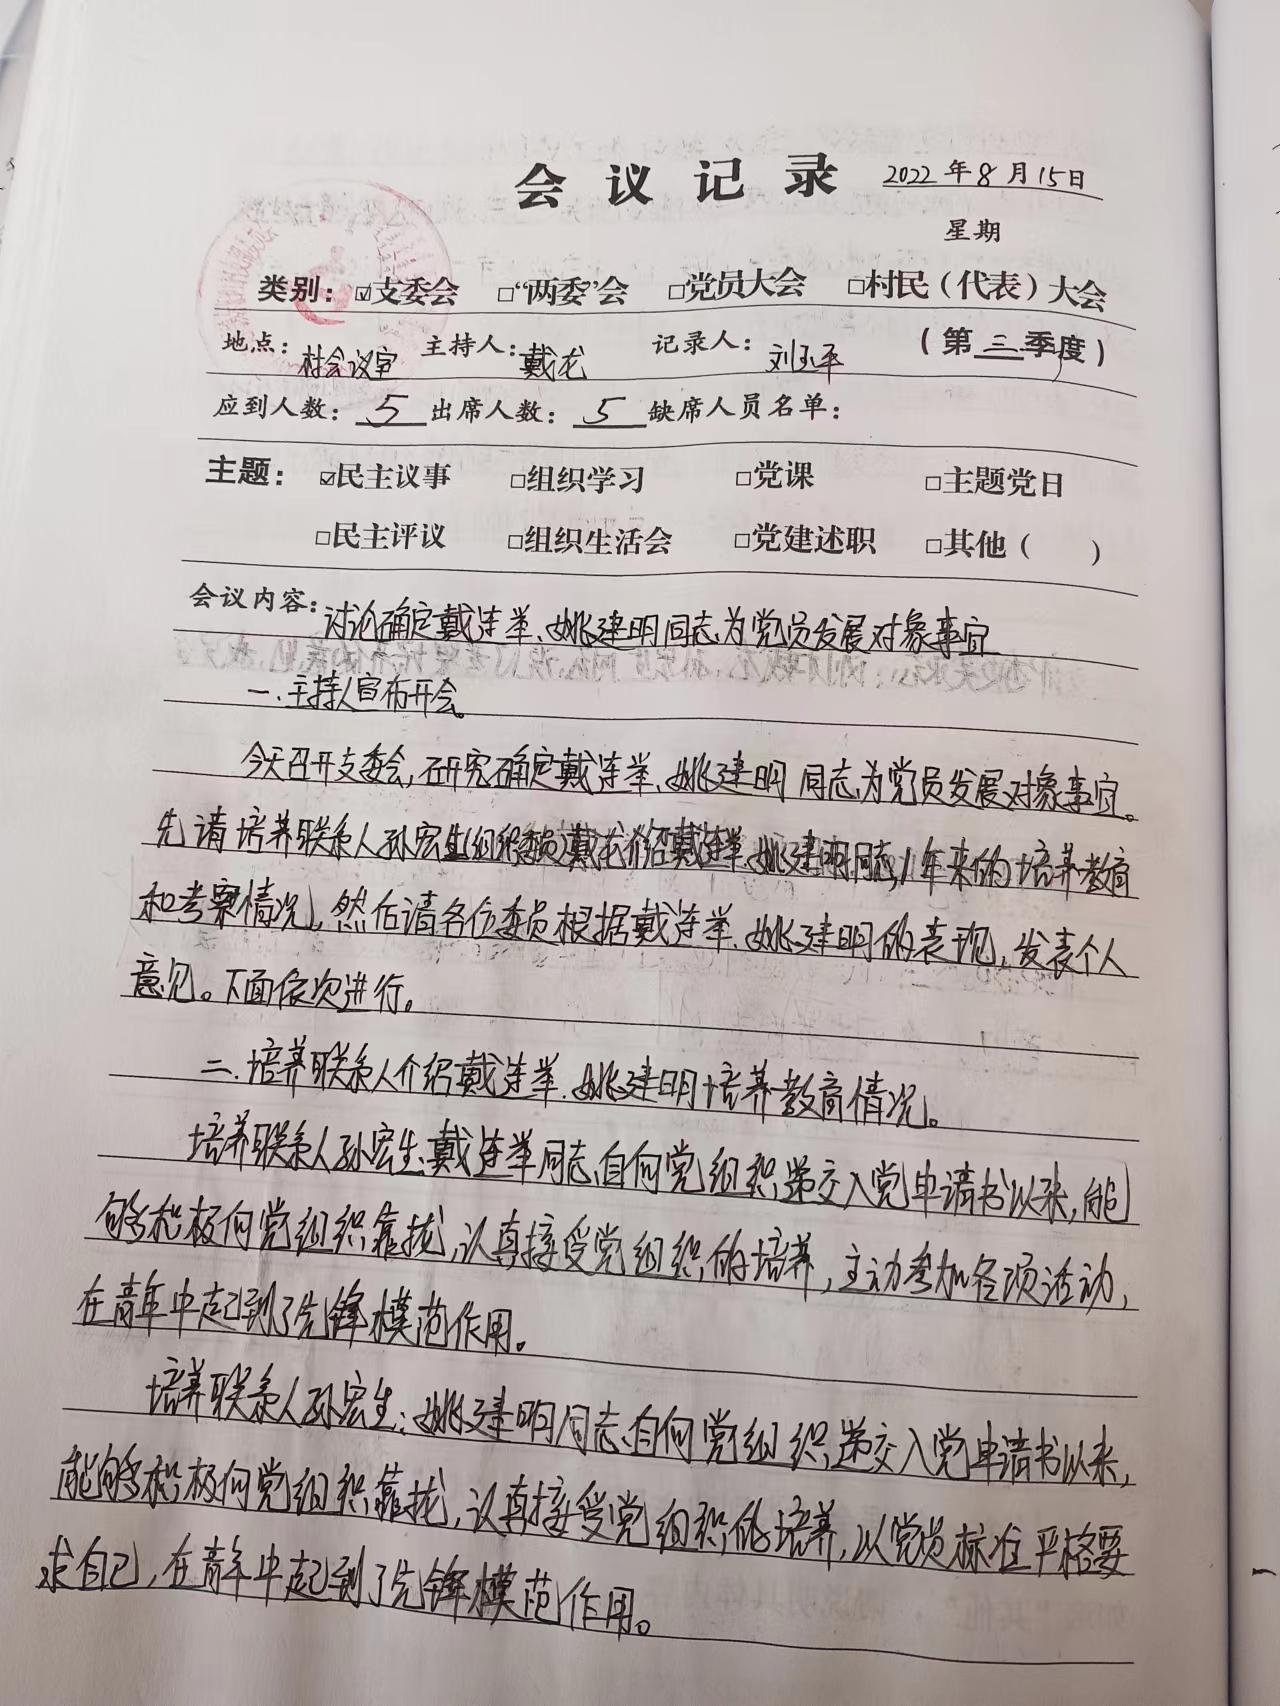 会议记录 2022年8月15日
星期
类别：☑支委会 □“两委”会 □党员大会 □村民（代表）大会
地点：村会议室 主持人：戴龙 记录人：刘玉平 （第三季度）
应到人数：5 出席人数：5 缺席人员名单：
主题：☑民主议事 □组织学习 □党课 □主题党日
□民主评议 □组织生活会 □党建述职 □其他（ ）
会议内容：讨论确定戴连举、姚建明同志为党员发展对象事宜
一.主持人宣布开会。
今天召开支委会，研究确定戴连举、姚建明同志为党员发展对象事宜。
先请培养联系人孙宏生(组织委员)戴龙介绍戴连举、姚建明同志1年来的培养教育
和考察情况，然后请各位委员根据戴连举、姚建明的表现，发表个人
意见。下面依次进行。
二.培养联系人介绍戴连举、姚建明培养教育情况。
培养联系人孙宏生：戴连举同志自向党组织递交入党申请书以来，能
够积极向党组织靠拢，认真接受党组织的培养，主动参加各项活动，
在青年中起到了先锋模范作用。
培养联系人孙宏生：姚建明同志自向党组织递交入党申请书以来，
能够积极向党组织靠拢，认真接受党组织的培养，以党员标准严格要
求自己，在青年中起到了先锋模范作用。